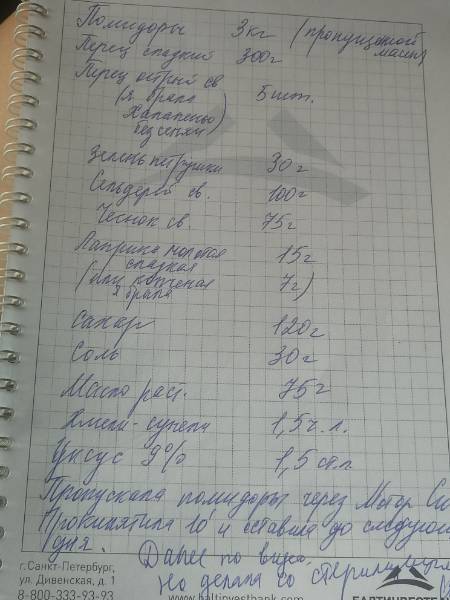 Помидоры 3кг (пропущенной
Перец сладкий 300г масин)
Перец острый св
(я брала 5шт.
Халапеньо
без семян)
Зелень петрушки 30г
Сельдерей св. 100г
Чеснок св. 75г
Паприка молотая 15г
сладкая
(или копченая 7г)
я брала
Сахар 120г
Соль 30г
Масло раст. 75г
Хмели-сунели 1,5ч.л.
Уксус 9% 1,5 ст.л
Пропускала помидоры через Мотор
Прокипятила 10' и оставила до
дня. Далее по
Но делала со
г.Санкт-Петербург,
ул. Дивенская, д.1
8-800-333-93-93
www.baltinvestbank.com